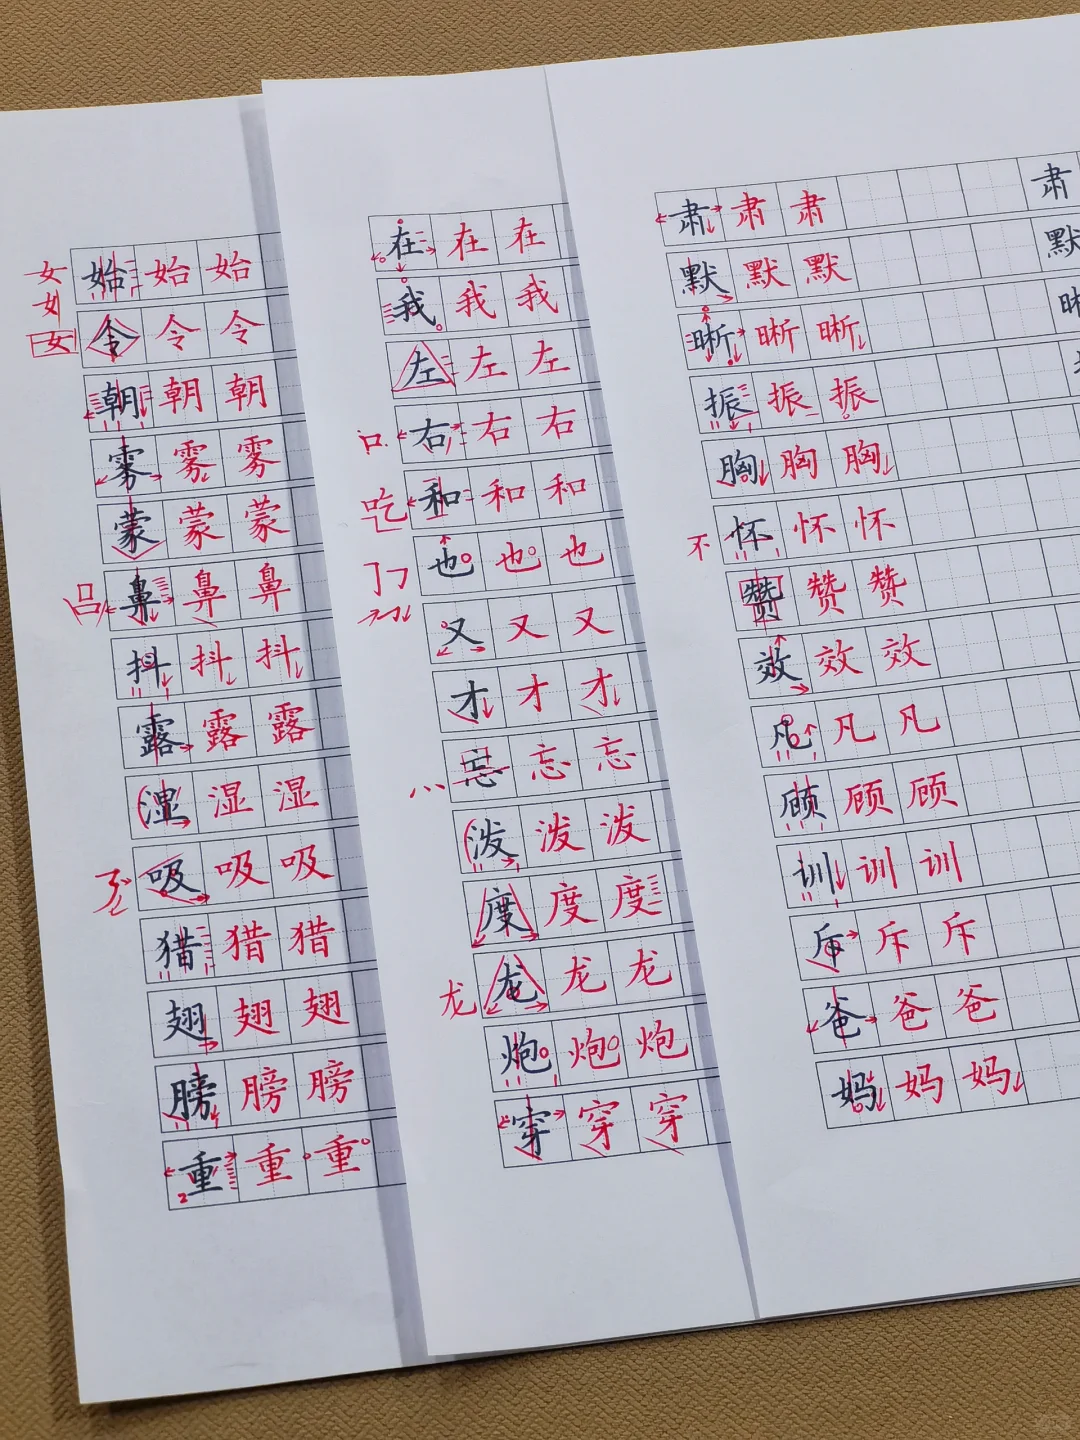 女 始 始 始
女
女 令 令 令
朝 朝 朝
雾 雾 雾
蒙 蒙 蒙
吕 鼻 鼻 鼻
抖 抖 抖
露 露 露
湿 湿 湿
吸 吸 吸
猎 猎 猎
翅 翅 翅
膀 膀 膀
重 重 重
在 在 在
我 我 我
左 左 左
口 右 右 右
吃 和 和 和
也 也 也
又 又 又
才 才 才
忘 忘 忘
泼 泼 泼
度 度 度
龙 龙 龙 龙
炮 炮 炮
穿 穿 穿
肃 肃 肃 肃
默 默 默 默
晰 晰 晰
振 振 振
胸 胸 胸
不 怀 怀 怀
赞 赞 赞
效 效 效
凡 凡 凡
顾 顾 顾
训 训 训
斥 斥 斥
爸 爸 爸
妈 妈 妈